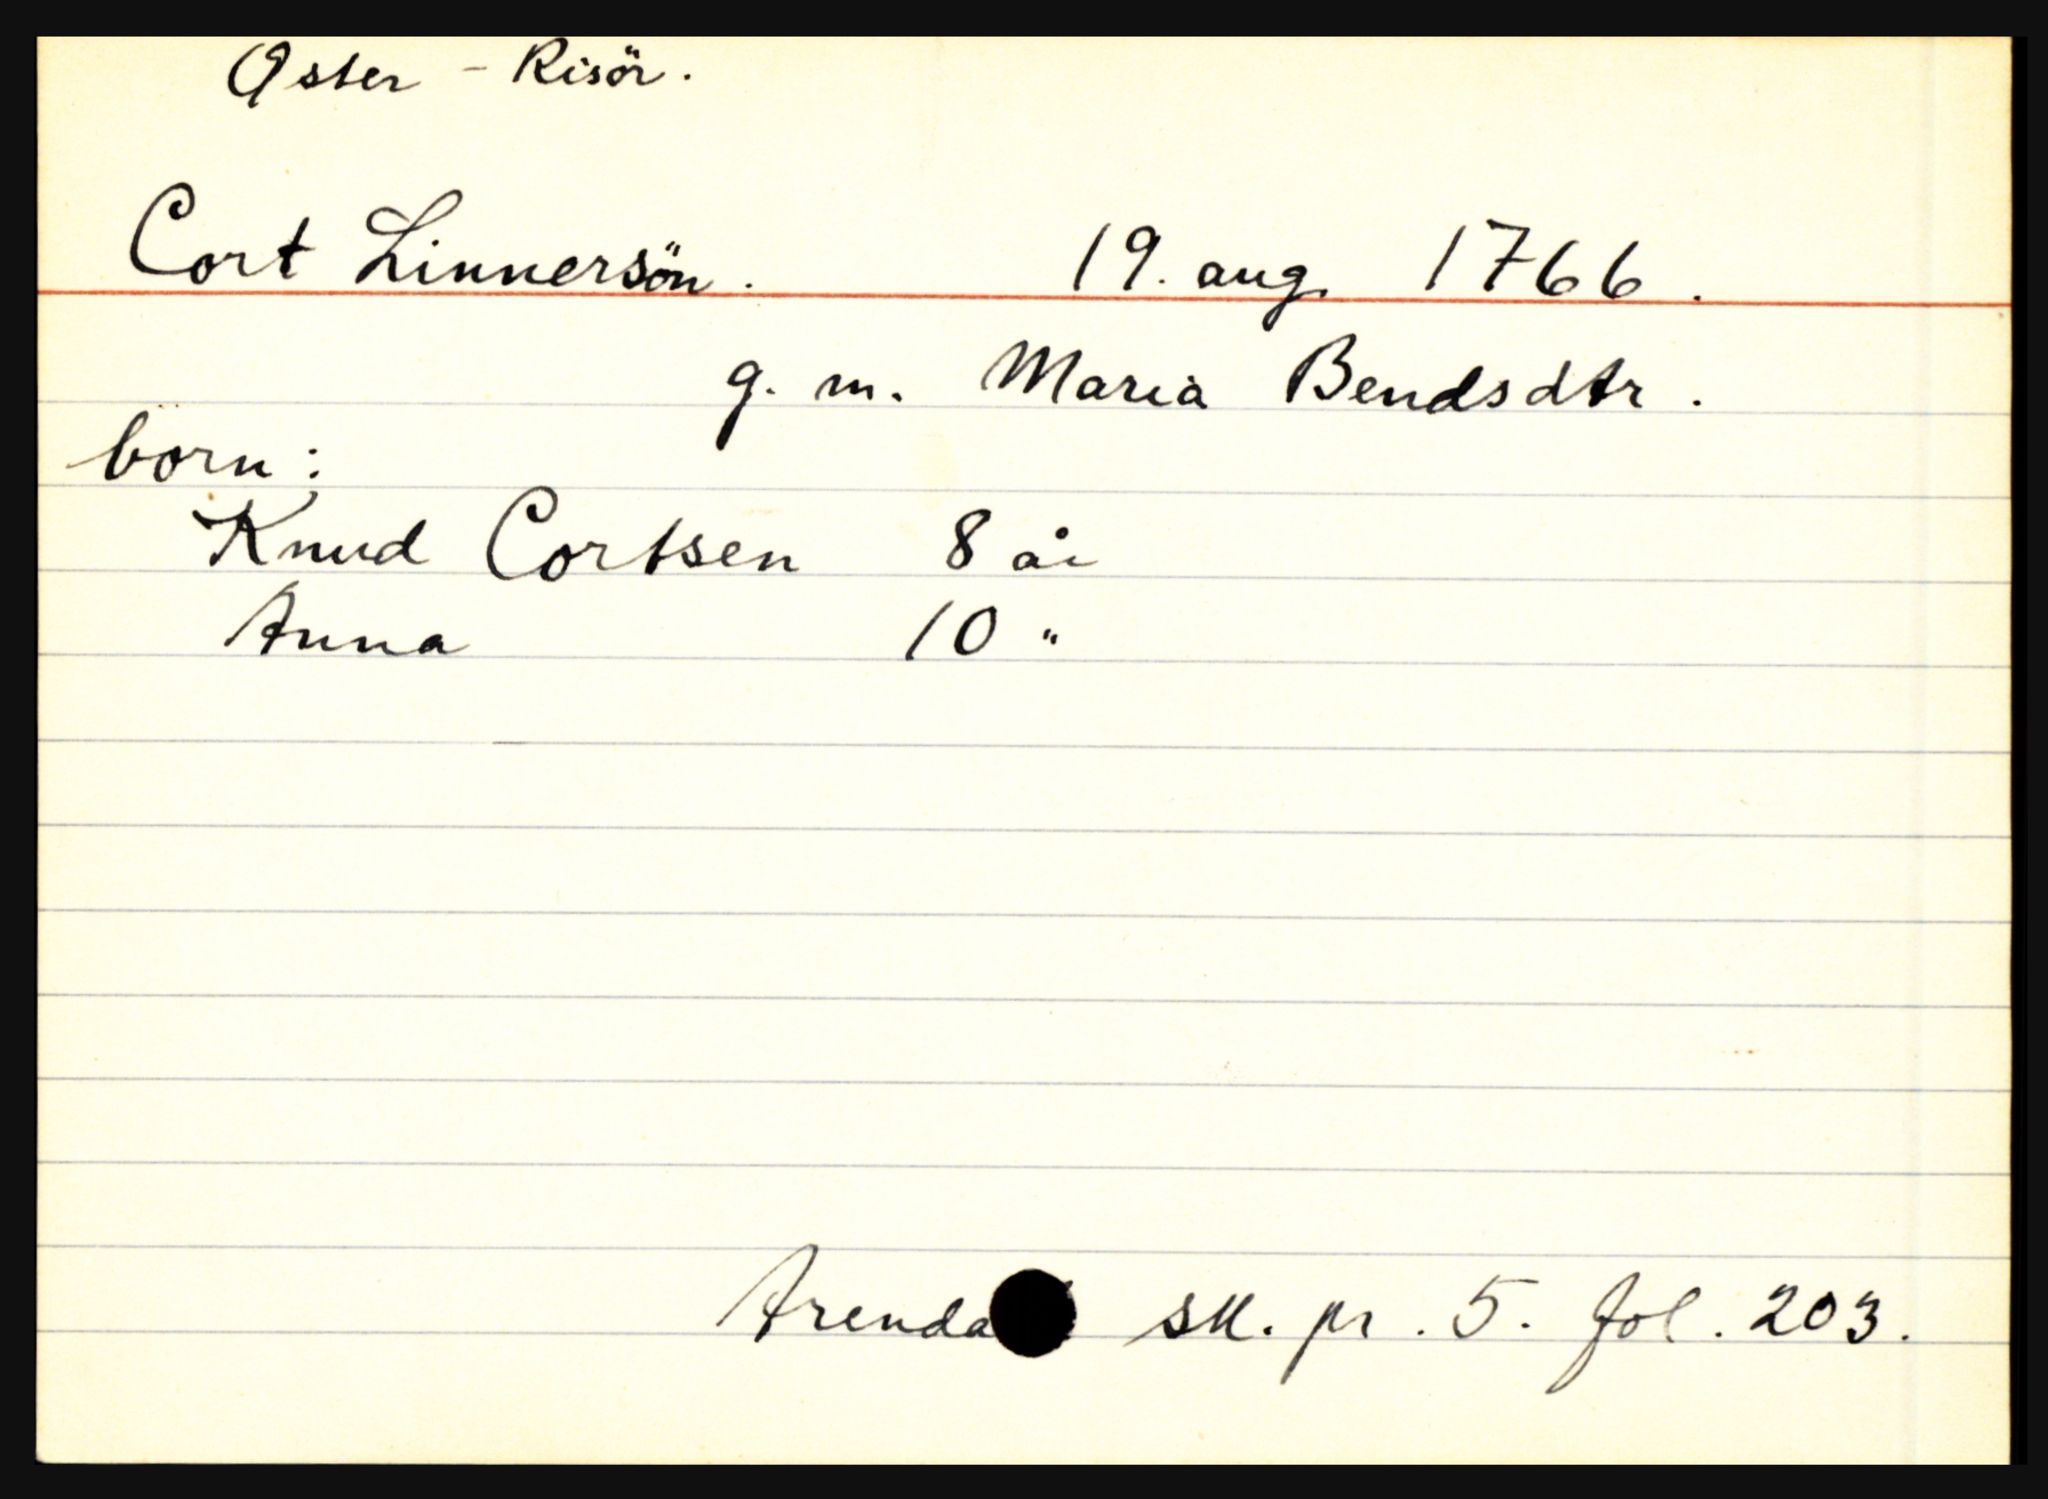 Øster - Risör.
Cort Linnersön. 19. aug. 1766.
g. m. Maria Bendsdtr.
börn:
Knud Cortsen 8 år
Anna 10 "
Arendal sk. pr. 5. fol. 203.